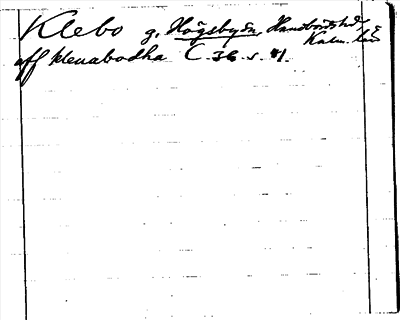 Klebo g. Högsby sn, Handbörds hd, Kalm. län
aff klenabodha C 36 s. 41.